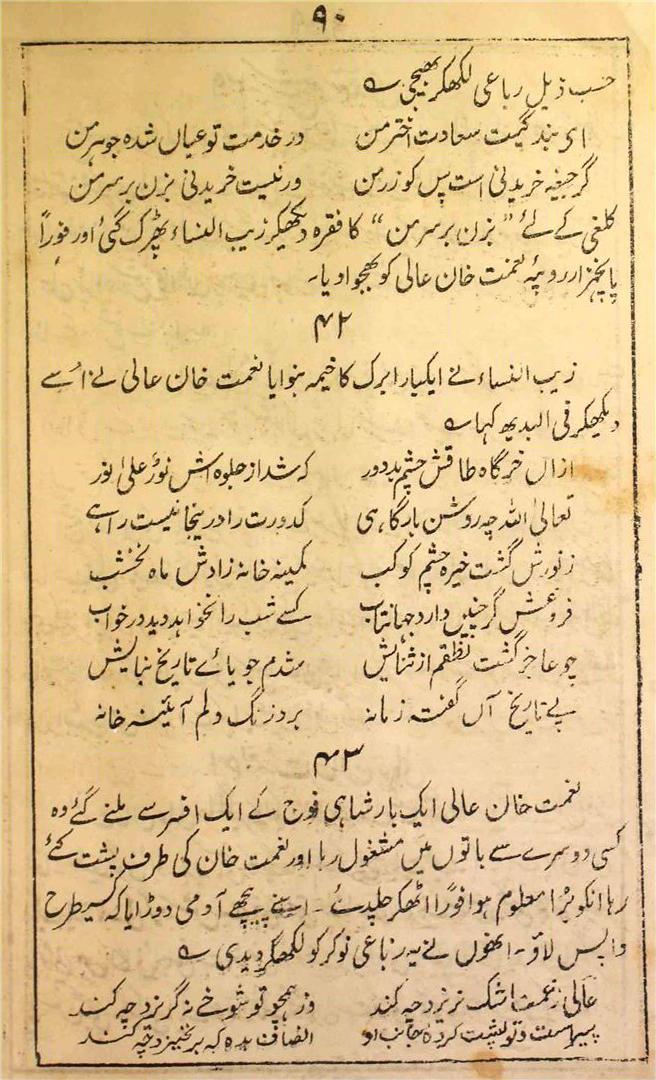 ۹۰
حسب ذیل رباعی لکھکر بھیجی ؎
ای بندگیت سعادت اختر من در خدمت تو عیاں شدہ جوہر من
گر جیغہ خریدنی است پس کو زر من ور نیست خریدنی بزن بر سر من
کلغی کے لئے "بزن بر سر من" کا فقرہ دیکھکر زیب النساء پھڑک گئی اور فوراً
پانچہزار روپیہ نعمت خان عالی کو بھجوا دیا۔
۴۲
زیب النساء نے ایکبار ابرک کا خیمہ بنوایا نعمت خان عالی نے اُسے
دیکھکر فی البدیھ کہا ؎
ازاں خرگاہ طاقش چشم بد دور کہ شد از جلوہ اش نورٌ علیٰ نور
تعالیٰ اللہ چہ روشن بارگاہی کدورت را در ینجا نیست راہے
ز نورش گشت خیرہ چشم کوکب کمینہ خانہ زادش ماہ نخشب
فروغش گر چنیں دارد جہانتاب کسے شب را نخواہد دید در خواب
چو عاجز گشت نطقم از ثنایش شدم جویائے تاریخ بنایش
پے تاریخ آں گفتہ زمانہ برد زنگ دلم آئینہ خانہ
۴۳
نعمت خان عالی ایک بار شاہی فوج کے ایک افسر سے ملنے گئے وہ
کسی دوسرے سے باتوں میں مشغول رہا اور نعمت خان کی طرف پشت کئے
رہا انکو بُرا معلوم ہوا فوراً اٹھکر چلدئے۔ اسنے پیچھے آدمی دوڑایا کہ کسیطرح
واپس لاؤ۔ انھوں نے یہ رباعی نوکر کو لکھکر دیدی ؎
عالی ز غمت اشک نریزد چہ کند وز ہمچو تو شوخے نہ گریزد چہ کند
پیر است و تو پشت کردۂ جانب او انصاف بدہ کہ بر نخیزد چہ کند